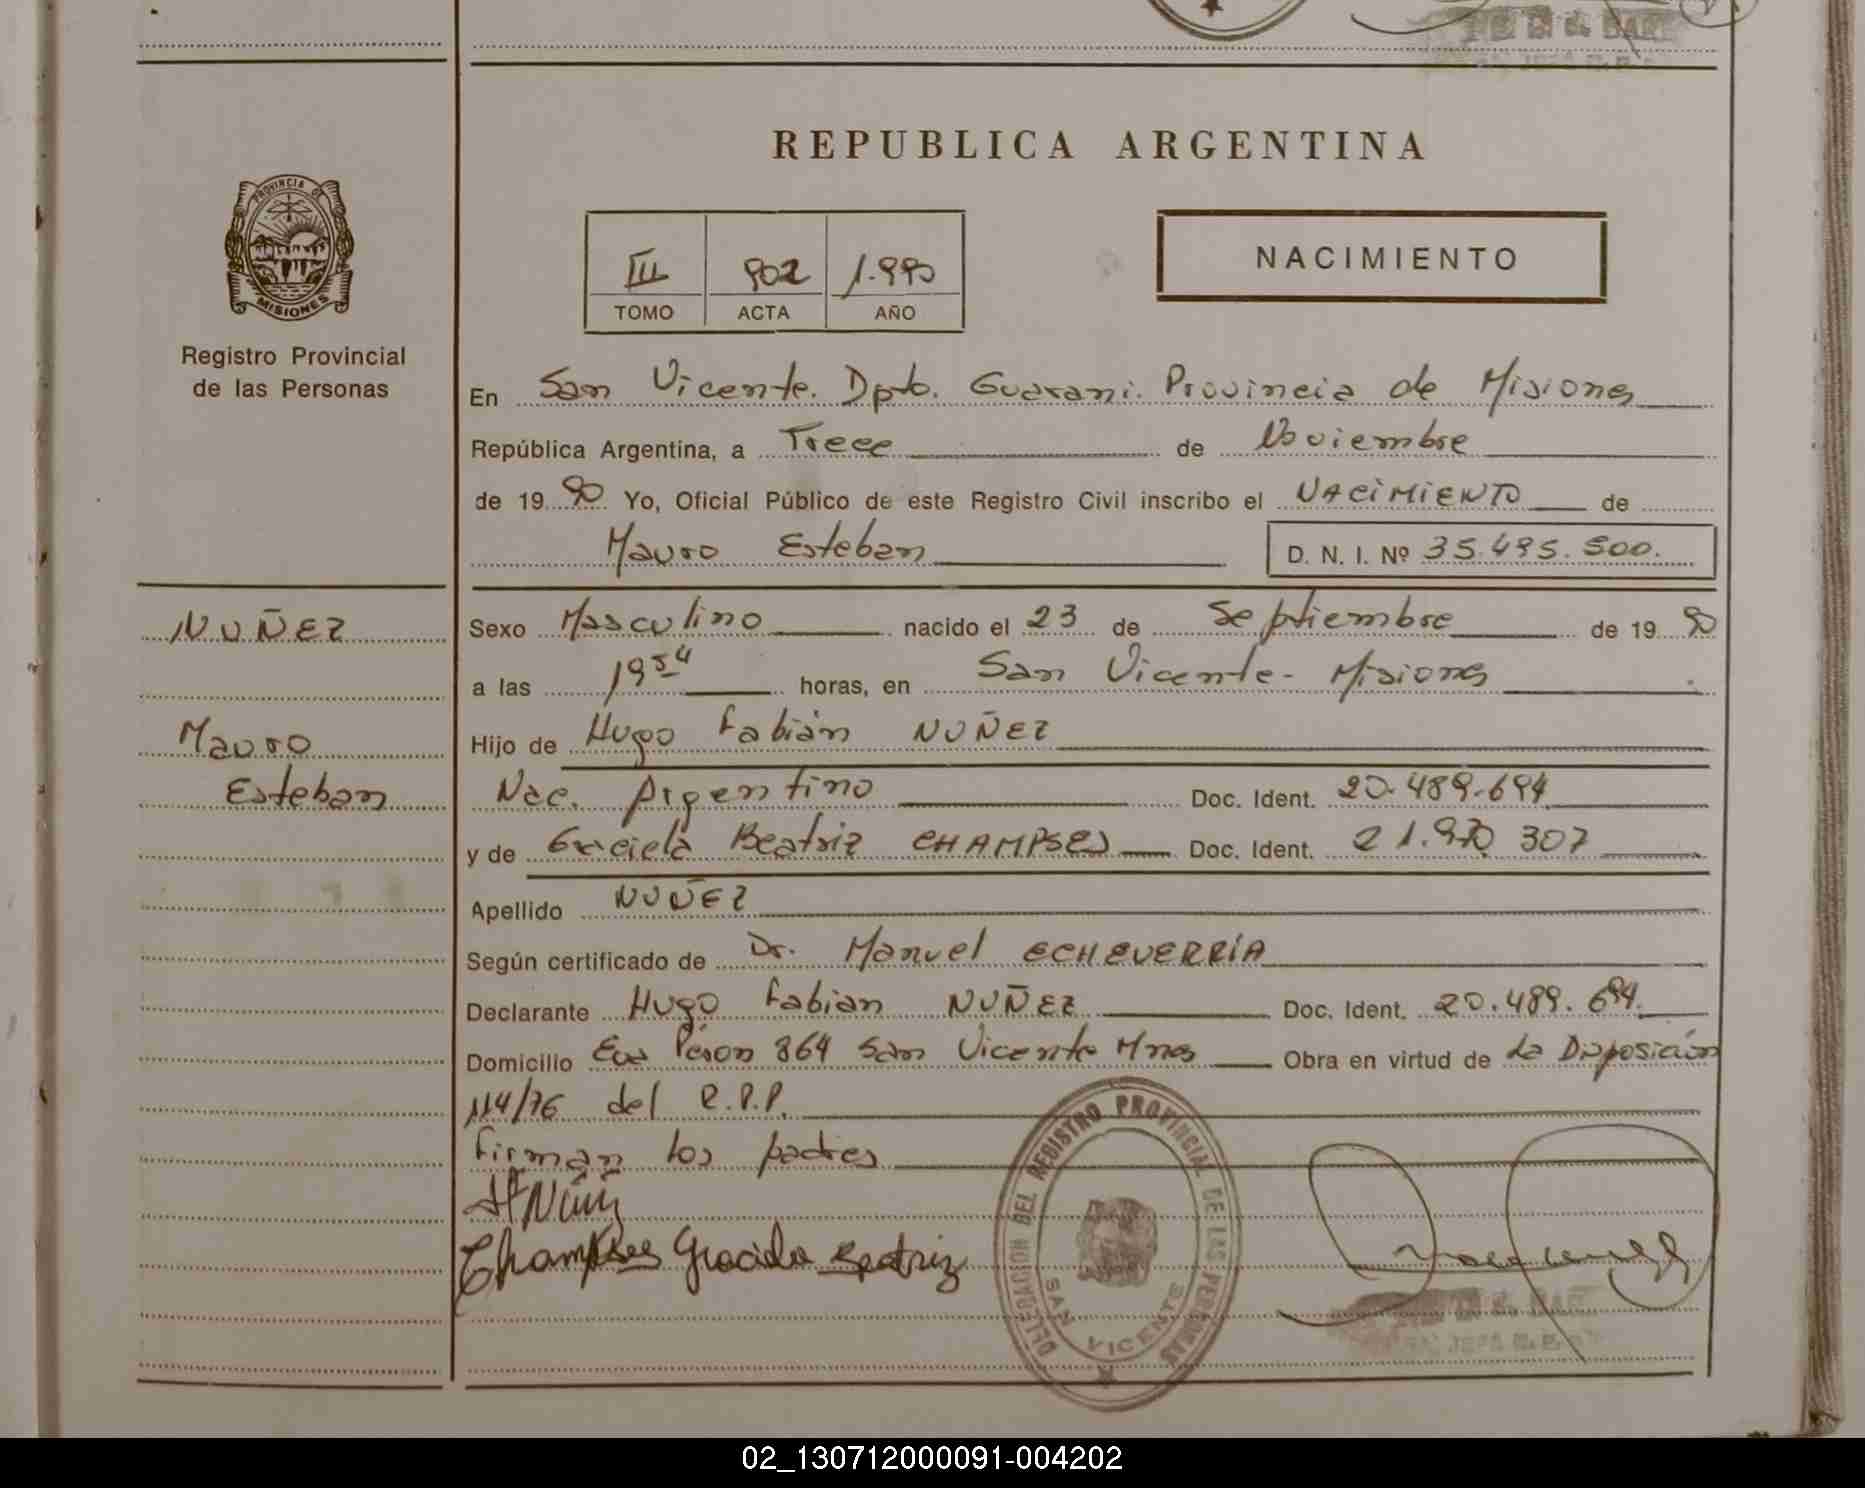 REPUBLICA ARGENTINA
PROVINCIA DE
MISIONES
Registro Provincial
de las Personas
NACIMIENTO
III 902 1.990
TOMO ACTA AÑO
En San Vicente. Dpto. Guarani. Provincia de Misiones
República Argentina, a Trece de Noviembre
de 1990 Yo, Oficial Público de este Registro Civil inscribo el NACIMIENTO de
Mauro Esteban D. N. I. Nº 35.495.500.
NUÑEZ
Mauro
Esteban
Sexo Masculino nacido el 23 de Septiembre de 1990
a las 19 54 horas, en San Vicente - Misiones
Hijo de Hugo Fabián NUÑEZ
Nac. Argentino Doc. Ident. 20.489.694
y de Graciela Beatriz CHAMPSES Doc. Ident. 21.970 307
Apellido NUÑEZ
Según certificado de Dr. Manuel ECHEVERRÍA
Declarante Hugo Fabian NUÑEZ Doc. Ident. 20.489.694.
Domicilio Eva Peron 864 San Vicente Mnes Obra en virtud de La Disposición
114/76 del R.P.P.
Firman los padres
Champses Graciela Beatriz
DELEGACION DEL REGISTRO PROVINCIAL DE LAS PERSONAS
SAN VICENTE
02_130712000091-004202